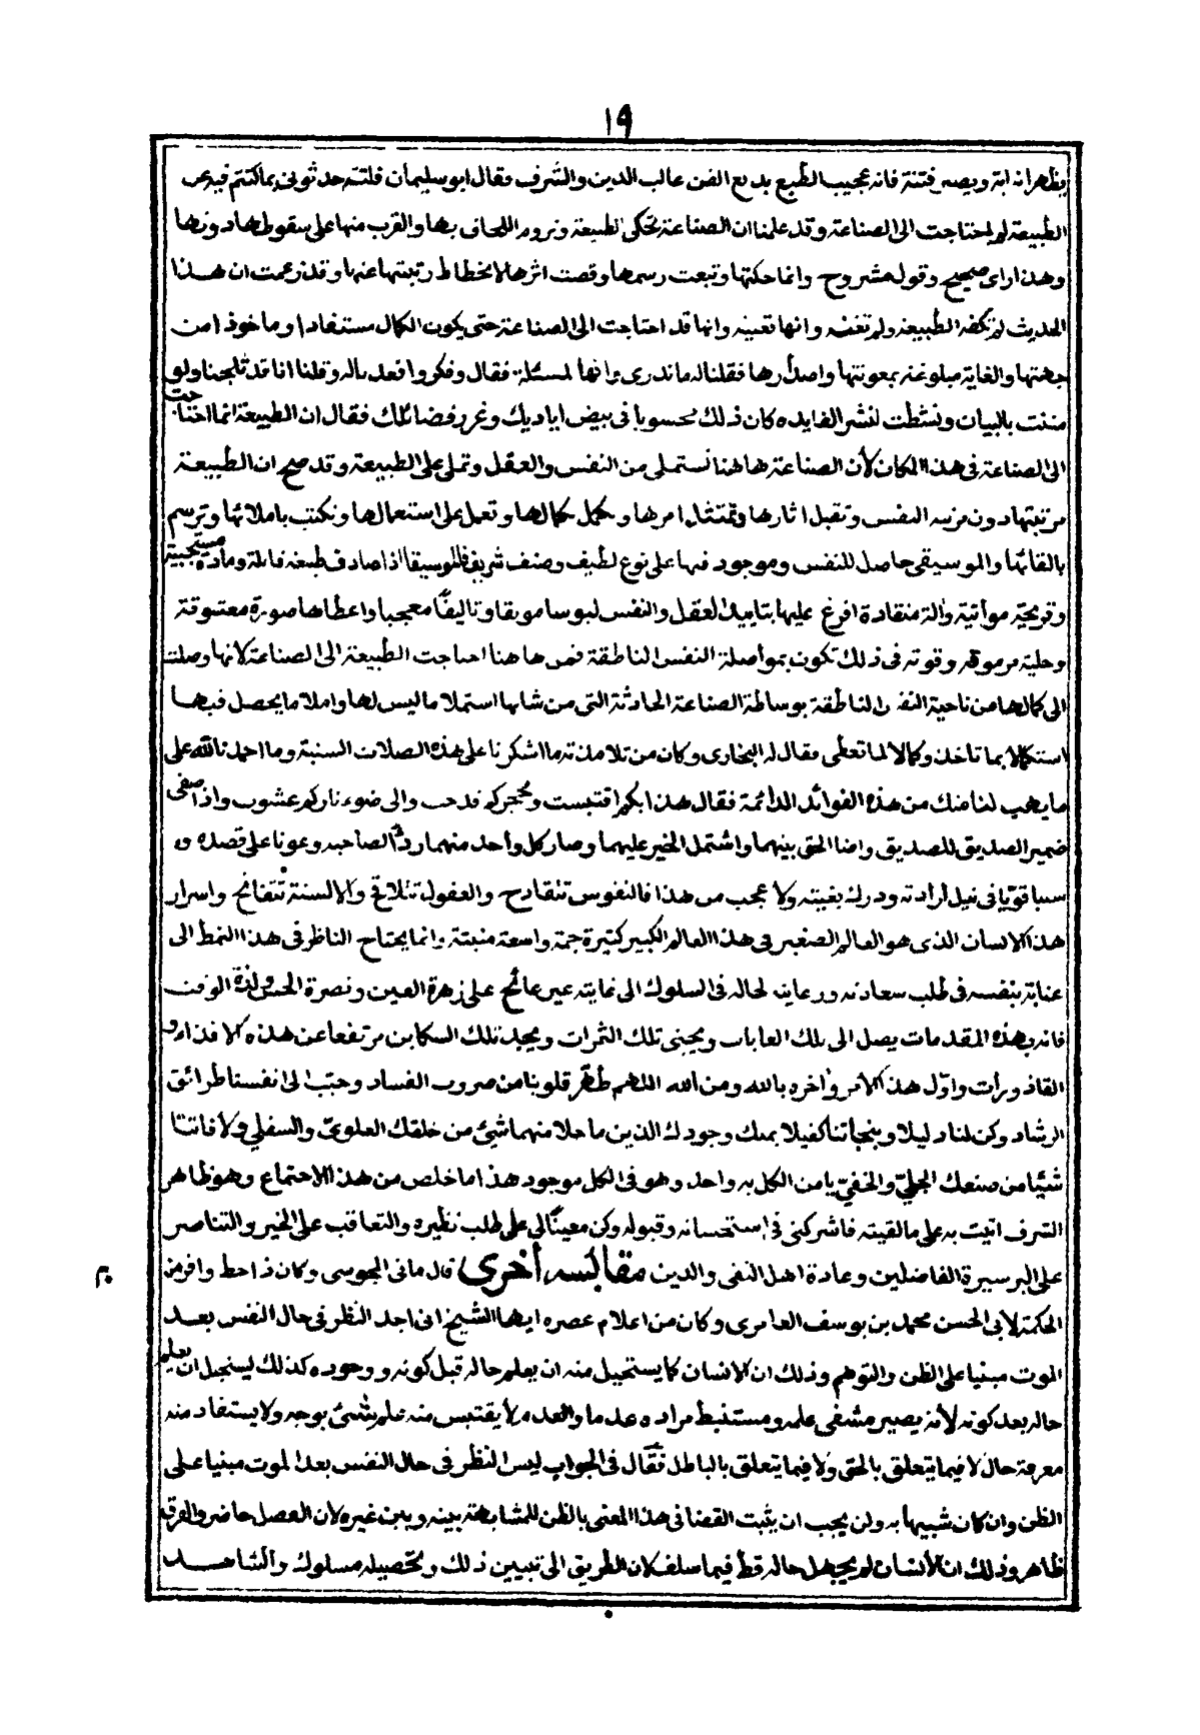 ١٩
يظهر انه ابة ويصير فتنة فانه عجيب الطبع بديع الفن غالب الدين والشرف فقال ابو سليمان فلتته حدثونى بما كنتم فيه عن
الطبيعة لم احتاجت الى الصناعة وقد علمنا ان الصناعة تحكى الطبيعة وتروم اللحاق بها والقرب منها على سقوطها دونها
وهذا راى صحيح وقوله مشروح وانما حكتها وتبعت رسمها وقصت اثرها لانحطاط رتبتها عنها وقد زعمت ان هذا
الحديث لم تكفه الطبيعة ولم تغنه وانها تعينه وانها قد احتاجت الى الصناعة حتى يكون الكمال مستفادا وماخوذا من
جهتها والغاية مبلوغة بمعونتها واصدارها فقلنا له ماندرى وانها لمسئلة فقال وفكروا فعد باله وقلنا انا قد تلجنا ولو
مننت بالبيان ونشطت لنشر الفايده كان ذلك محسوبا فى بيض اياديك وغرر فضائلك فقال ان الطبيعة انما احتاجت
الى الصناعة فى هذا المكان لأن الصناعة هاهنا تستملى من النفس والعقل وتملى على الطبيعة وقد صح ان الطبيعة
مرتبتها دون مرتبة النفس وتقبل اثارها وتمتثل امرها وتكمل بكمالها وتعمل على استعمالها وتكتب باملائها وترسم
بالقائها والموسيقى حاصل للنفس وموجود فيها على نوع لطيف وصنف شريف فالموسيقا اذا صادف طبيعة قابلة ومادة مستجيبة
وقريحة مواتية وآلة منقادة افرغ عليها بتاييد العقل والنفس لبوسا مونقا وتاليفًا معجبا واعطاها صورة معشوقة
وحلية مرموقة وقوته فى ذلك تكون بمواصلة النفس الناطقة فمن هاهنا احتاجت الطبيعة الى الصناعة لانها وصلت
الى كمالها من ناحية النفس الناطقة بوساطة الصناعة الحادثة التى من شانها استملا ماليس لها واملا ما يحصل فيها
استكمالا بما تاخذ وكمالا لما تعطى فقال له البخارى وكان من تلامذته ما اشكرنا على هذه الصلات السنية وما احمدنا لله على
ما يهب لنا منك من هذه الفوائد الدائمة فقال هذا بكم اقتبست وبحجركم قدحت والى ضوء ناركم عشوت واذا صفى
ضمير الصديق للصديق واضا الحق بينهما واشتمل الخير عليهما وصار كل واحد منهما ردءًا لصاحبه وعونا على قصده و
سببا قويًا فى نيل ارادته ودرك بغيته ولا عجب من هذا فالنفوس تتقادح والعقول تتلاقح والالسنة تتفاتح واسرار
هذا الانسان الذى هو العالم الصغير فى هذا العالم الكبير كثيرة جمة واسعة منبثة وانما يحتاج الناظر فى هذا النمط الى
عناية بنفسه فى طلب سعادته ورعاية لحاله فى السلوك الى غايته غير عائج على زهرة العين ونضرة الحس ولذة الوقت
فانه بهذه المقدمات يصل الى تلك الغايات ويجنى تلك الثمرات ويجد تلك السكاين مرتفعا عن هذه الاقذار و
القاذورات واوّل هذا الامر وآخره بالله ومن الله اللهم طهّر قلوبنا من ضروب الفساد وحبّب الى انفسنا طرائق
الرشاد وكن لنا دليلا وبنجاتنا كفيلا بمنك وجودك الذين ما خلا منهما شئ من خلقك العلوىّ والسفلى ولا فاتتا
شيئا من صنعك الجلىّ والخفىّ يا من الكل به واحد وهو فى الكل موجود هذا ما خلص من هذا الاجتماع وهو ظاهر
الشرف اتيت به على ما لقيته فاشركنى فى استحسانه وقبوله وكن معينًا لى على طلب نظيره والتعاقب على الخير والتناصر
على البر سيرة الفاضلين وعادة اهل التقى والدين مقابسه أخرى قال مانى المجوسى وكان ذا حظ وافر من
الحكمة لابى الحسن محمد بن يوسف العامرى وكان من اعلام عصره ايها الشيخ انى اجد النظر فى حال النفس بعد
الموت مبنيا على الظن والتوهم وذلك ان الانسان كما يستحيل منه ان يعلم حاله قبل كونه ووجوده كذلك يستحيل ان يعلم
حاله بعد كونه لأنه يصير مشفى علمه ومستنبط مراده عدما والعدم لا يقتبس منه علم بشئ بوجه ولا يستفاد منه
معرفة حال لا فيما يتعلق بالحق ولا فيما يتعلق بالباطل فقال فى الجواب ليس النظر فى حال النفس بعد الموت مبنيا على
الظن وان كان شبيها به ولن يجب ان يثبت القضا فى هذا المعنى بالظن للمشابهة بينه وبين غيره لان الفصل حاضر والفرق
ظاهر وذلك ان الأنسان لم يجهل حاله قط فيما سلف لان الطريق الى تبيين ذلك وتحصيله مسلوك والشاهد